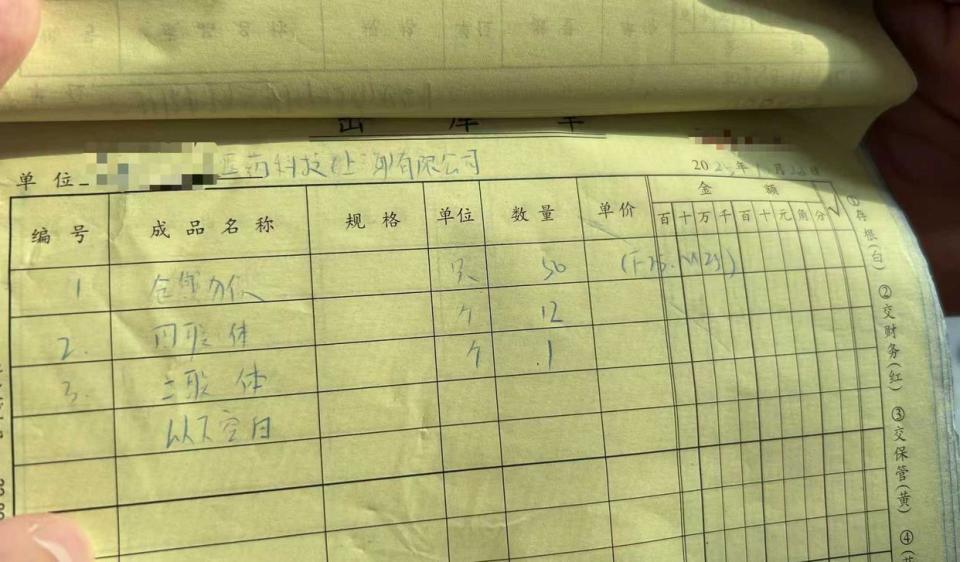 出库单
单位 医药科技(上海)有限公司 202 年 月 日
编号 成品名称 规格 单位 数量 单价 金额
百十万千百十元角分 √
1 只 50
2. 四联体 个 12
3. 二联体 个 1
以下空白
①存根(白)
②交财务(红)
③交保管(黄)
④